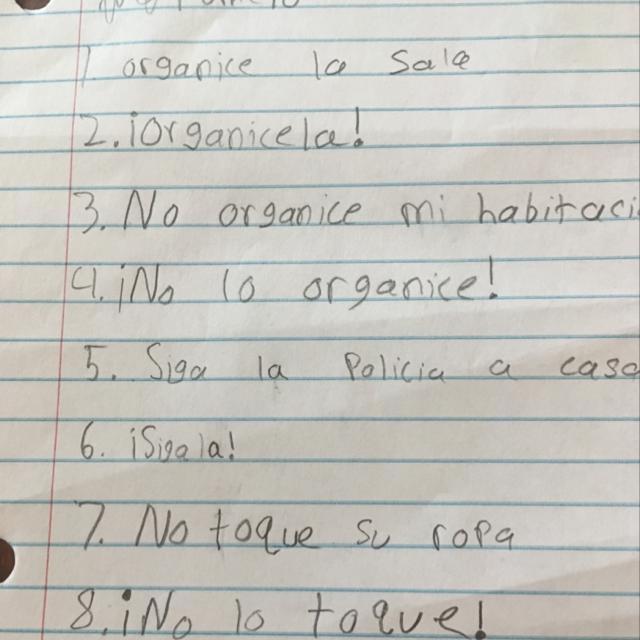 1 organice la Sala
2. ¡Organicela!
3. No organice mi habitaci
4. ¡No lo organice!
5. Siga la Policia a casa
6. ¡Sigala!
7. No toque su ropa
8. ¡No lo toque!